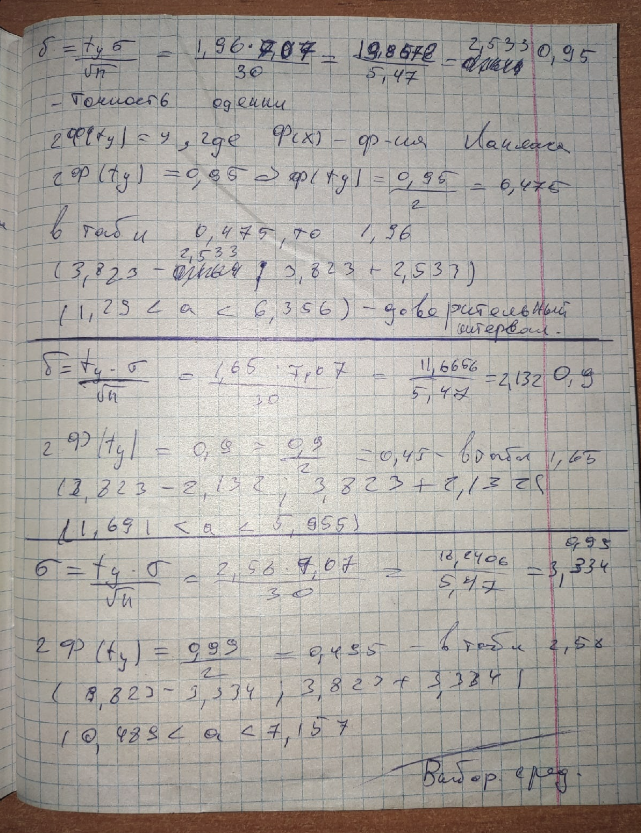 δ = tγ σ / √n = 1,96 · 7,07 / 30 = 13,8572 / 5,47 = 2,533 0,95
- Точность оценки
2Ф(tγ) = γ, где Ф(x) - ф-ия Лапласа
2Ф(tγ) = 0,95 => Ф(tγ) = 0,95 / 2 = 0,475
в табл 0,475, то 1,96
(3,823 - 2,533 ; 3,823 + 2,533)
(1,29 < a < 6,356) - доверительный
интервал.
δ = tγ · σ / √n = 1,65 · 7,07 / 30 = 11,6656 / 5,47 = 2,132 0,9
2Ф(tγ) = 0,9 = 0,9 / 2 = 0,45 - в табл 1,65
(3,823 - 2,132 ; 3,823 + 2,132(
(1,691 < a < 5,955)
0,99
δ = tγ · σ / √n = 2,58 · 7,07 / 30 = 18,2406 / 5,47 = 3,334
2Ф(tγ) = 0,99 / 2 = 0,495 - в табл 2,58
(3,823 - 3,334 ; 3,823 + 3,334)
(0,489 < a < 7,157
Выбор. сред.